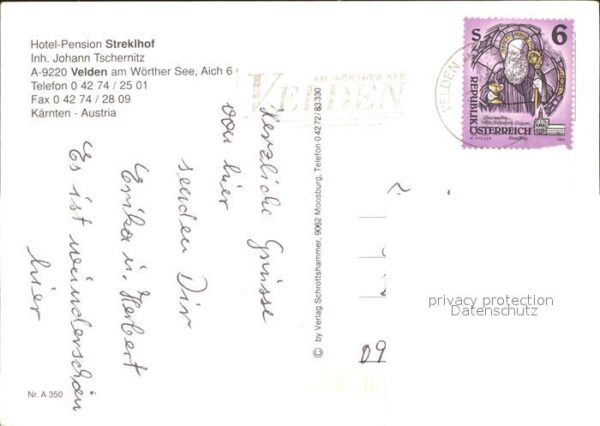 Hotel-Pension Streklhof
Inh. Johann Tschernitz
A-9220 Velden am Wörther See, Aich 6
Telefon 0 42 74 / 25 01
Fax 0 42 74 / 28 09
Kärnten - Austria
AM WÖRTHER SEE
VELDEN
VELDEN
S 6
REPUBLIK
ÖSTERREICH
Herzliche Grüsse
von hier
senden Dir
Erika u. Herbert
Es ist wunderschön
hier
© by Verlag Schrottshammer, 9062 Moosburg, Telefon 0 42 72 / 83 330
privacy protection
Datenschutz
09
Nr. A 350